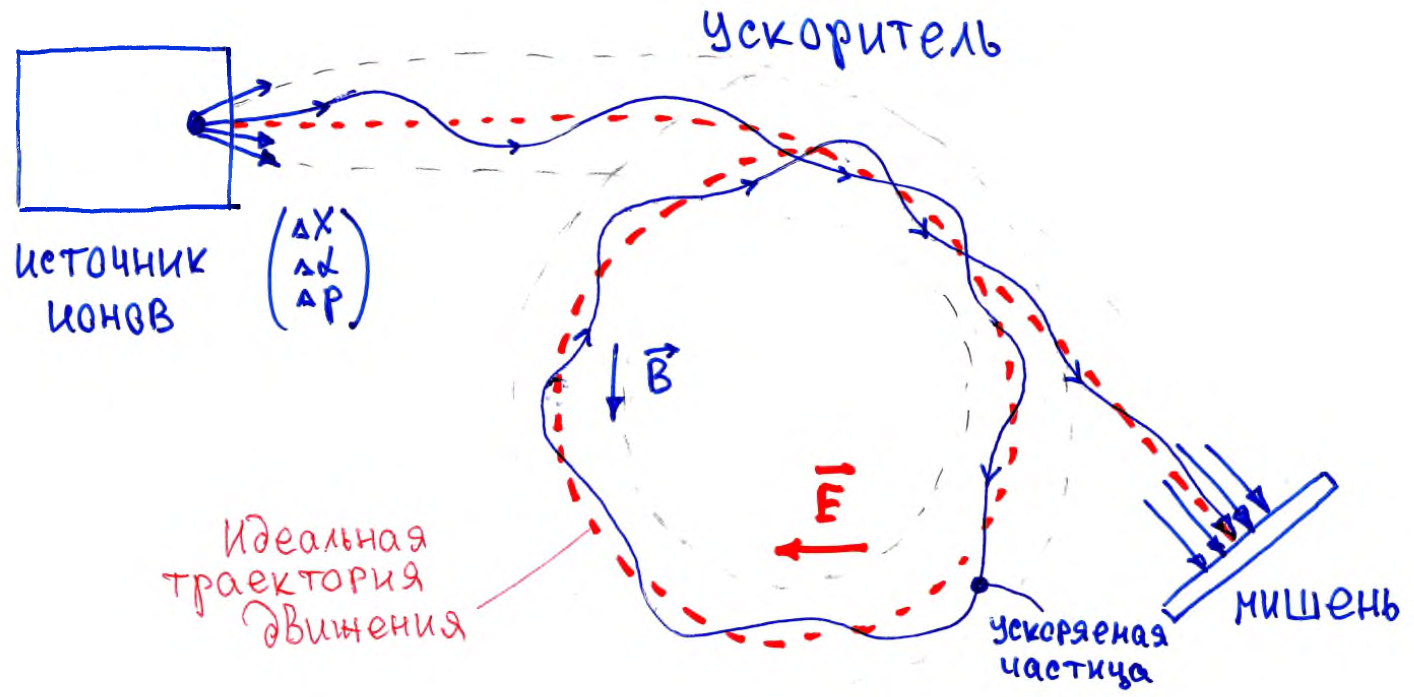 ускоритель
источник
ионов
ΔX
Δα
Δp
B
E
Идеальная
траектория
движения
ускоряемая
частица
мишень